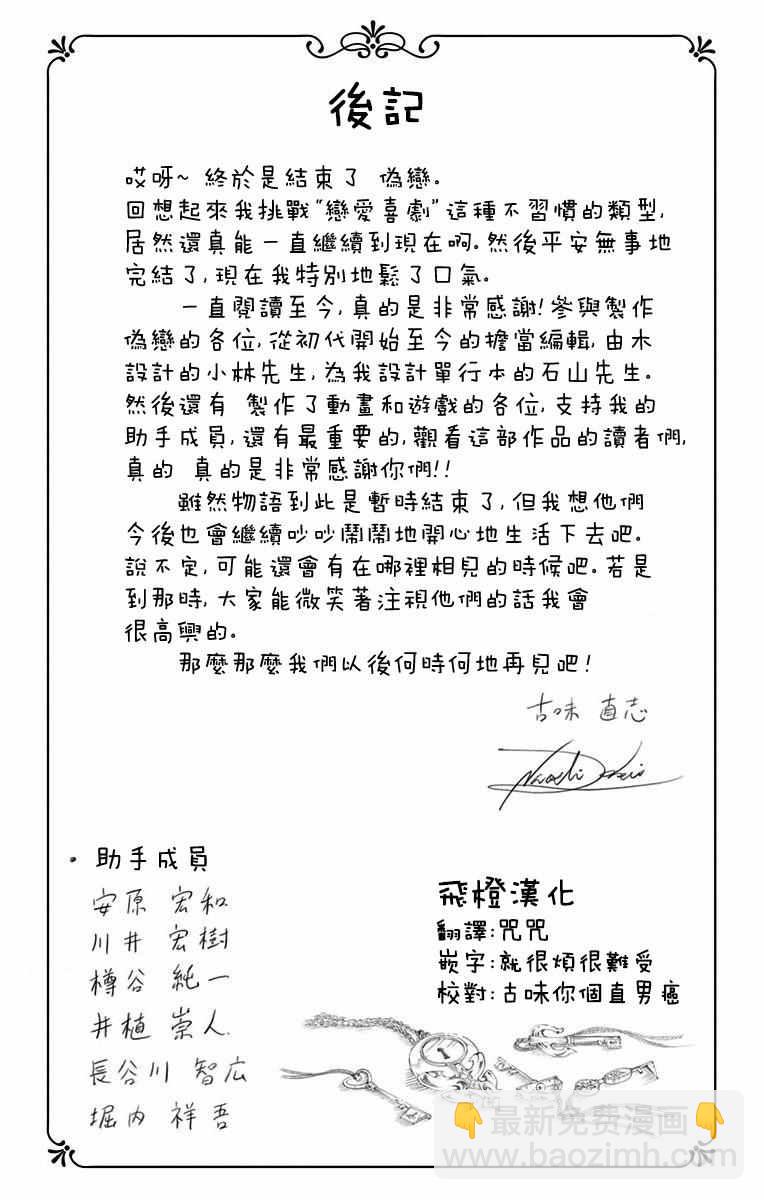 後記
哎呀~ 終於是結束了 偽戀.
回想起來我挑戰"戀愛喜劇"這種不習慣的類型,
居然還真能一直繼續到現在啊.然後平安無事地
完結了,現在我特別地鬆了口氣.
一直閱讀至今,真的是非常感謝!參與製作
偽戀的各位,從初代開始至今的擔當編輯,由木
設計的小林先生,為我設計單行本的石山先生.
然後還有 製作了動畫和遊戲的各位,支持我的
助手成員,還有最重要的,觀看這部作品的讀者們,
真的 真的是非常感謝你們!!
雖然物語到此是暫時結束了,但我想他們
今後也會繼續吵吵鬧鬧地開心地生活下去吧.
說不定,可能還會有在哪裡相見的時候吧.若是
到那時,大家能微笑著注視他們的話我會
很高興的.
那麼那麼我們以後何時何地再見吧!
古味 直志
Naoshi Komi
・助手成員
安原 宏和
川井 宏樹
樽谷 純一
井植 崇人.
長谷川 智広
堀内 祥吾
飛橙漢化
翻譯:咒咒
嵌字:就很煩很難受
校對:古味你個直男癌
👇最新免费漫画👇
www.baozimh.com